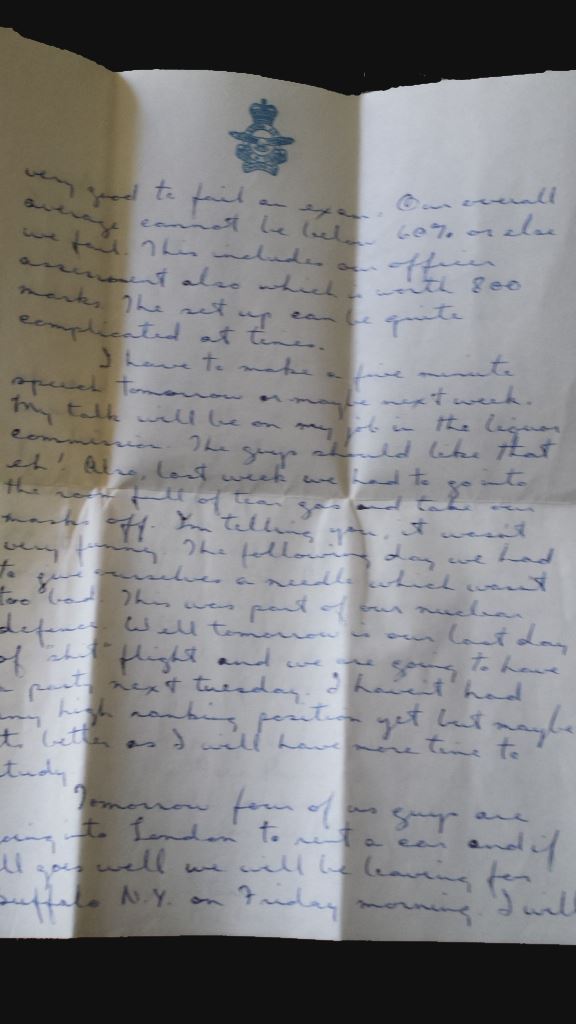 very good to fail an exam. Our overall
average cannot be below 60% or else
we fail. This includes our officer
assessment also which is worth 800
marks. The set up can be quite
complicated at times.
I have to make a five minute
speech tomorrow or maybe next week.
My talk will be on my job in the liquor
commission. The guys should like that
eh! Also, last week we had to go into
the room full of tear gas and take our
masks off. I'm telling you, it wasn't
very funny. The following day we had
to give ourselves a needle which wasn't
too bad. This was part of our nuclear
defence. Well tomorrow is our last day
of "shit" flight and we are going to have
a party next tuesday. I haven't had
any high ranking position yet but maybe
its better as I will have more time to
study
Tomorrow four of us guys are
going into London to rent a car and if
all goes well we will be leaving for
Buffalo N.Y. on Friday morning. I will